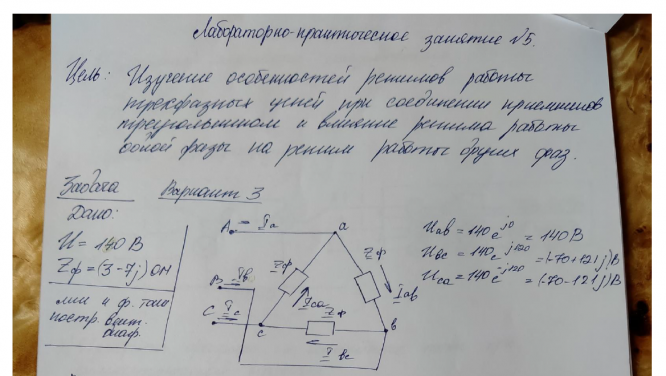 Лабораторно-практическое занятие №5.
Цель: Изучение особенностей режимов работы
трехфазных цепей при соединении приемников
треугольником и влияние режима работы
одной фазы на режим работы других фаз.
Задача Вариант 3
Дано:
U = 140 В
Zф = (3-7j) Ом
лин и ф. токи
постр. вект.
диаф.
A İa a
Zф Zф
B İв
İca İab
C İc c Zф в
İ вс
Uав = 140 e^j0 = 140 В
Uвс = 140 e^j120 = (-70+121j) В
Uса = 140 e^-j120 = (-70-121j) В